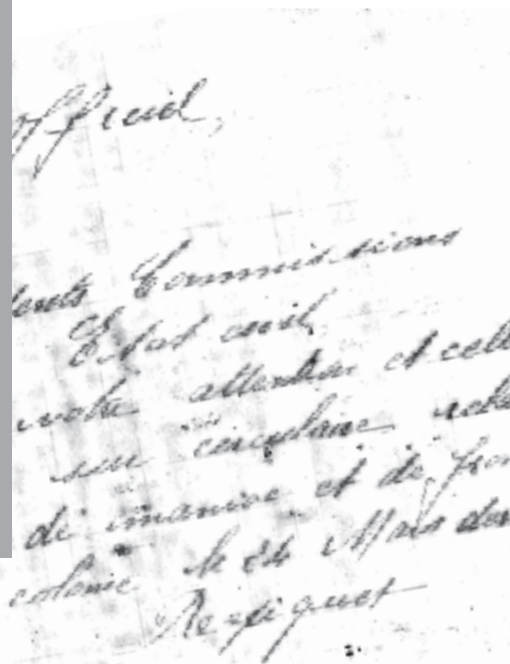 Officiel,
dents Commissions
Etat civil
votre attention et celle
sur circulaire
de et de
colonie le 24 Mars
Repiquet